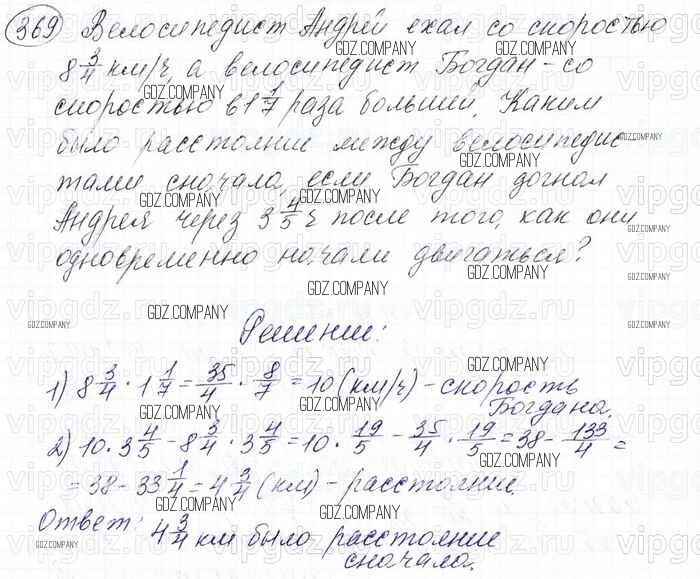 369 Велосипедист Андрей ехал со скоростью
8 3/4 км/ч, а велосипедист Богдан - со
скоростью в 1 1/7 раза большей. Каким
было расстояние между велосипедис-
тами сначала, если Богдан догнал
Андрея через 3 4/5 ч после того, как они
одновременно начали двигаться?
Решение:
1) 8 3/4 · 1 1/7 = 35/4 · 8/7 = 10 (км/ч) - скорость
Богдана.
2) 10 · 3 4/5 - 8 3/4 · 3 4/5 = 10 · 19/5 - 35/4 · 19/5 = 38 - 133/4 =
= 38 - 33 1/4 = 4 3/4 (км) - расстояние.
Ответ: 4 3/4 км было расстояние
сначала.
GDZ.COMPANY
vipgdz.ru